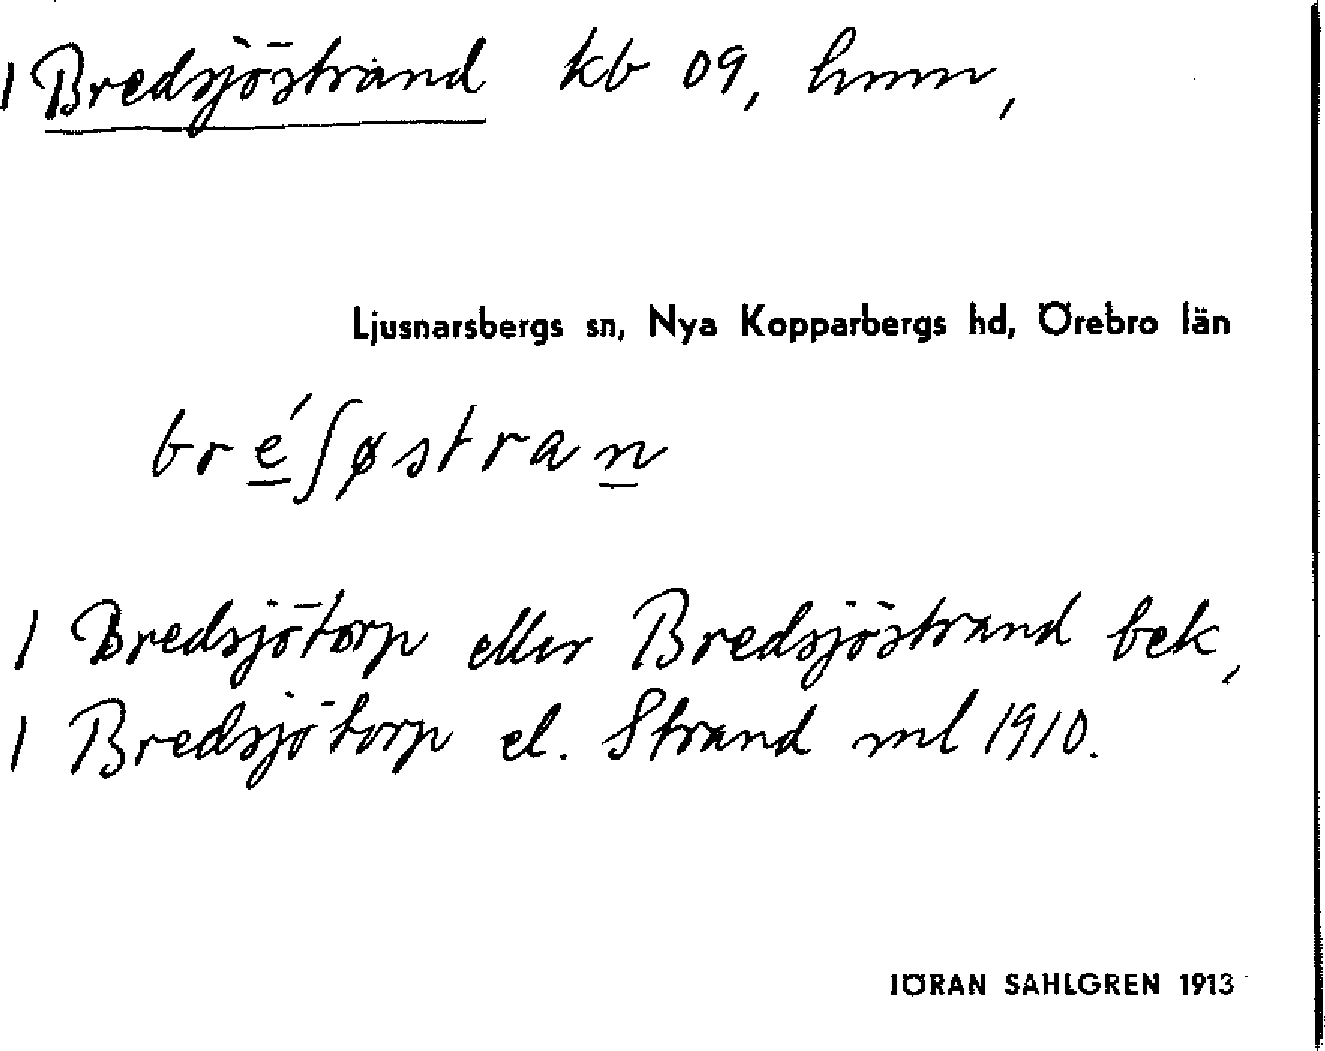 1 Bredsjöstrand kb 09, hmn,
Ljusnarsbergs sn, Nya Kopparbergs hd, Örebro län
bré∫østran
1 Bredsjötorp eller Bredsjöstrand bek,
1 Bredsjötorp el. Strand ml 1910.
JÖRAN SAHLGREN 1913